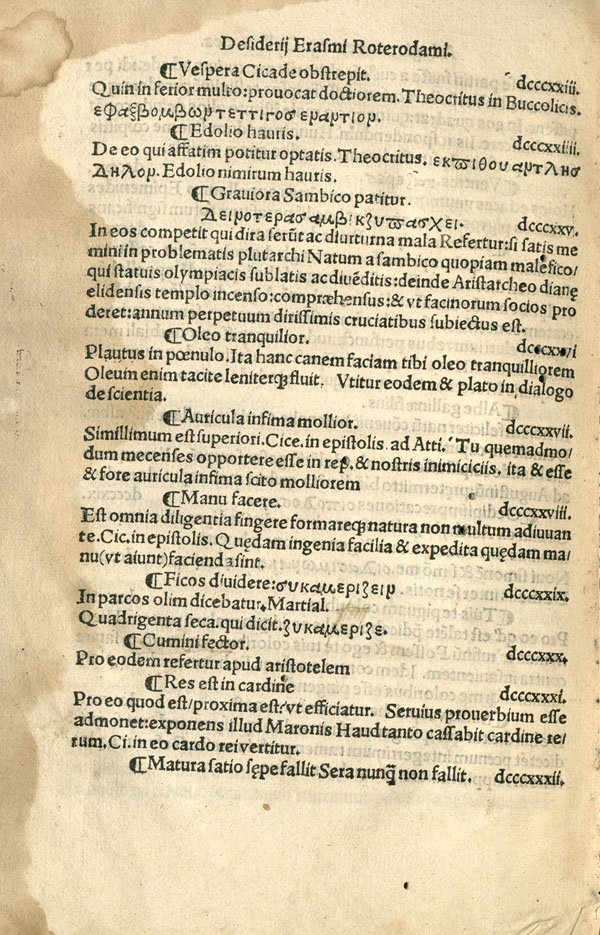 Desiderij Erasmi Roterodami.
¶Vespera Cicade obstrepit. dcccxxiii.
Quin inferior multo:prouocat doctiorem. Theocritus in Buccolicis.
¶Edolio hauris. dcccxxiiii.
De eo qui affatim potitur optatis. Theocritus.
Edolio nimirum hauris.
¶Grauiora Sambico patitur.
dcccxxv.
In eos competit qui dira ferũt ac diurturna mala Refertur:si satis me
mini in problematis plutarchi Natum a sambico quopiam malefico/
qui statuis olympiacis sublatis ac diuẽditis:deinde Aristarcheo dianę
elidensis templo incenso:compræhensus:& vt facinorum socios pro
deret:annum perpetuum dirissimis cruciatibus subiectus est.
¶Oleo tranquilior. dcccxxvi
Plautus in pœnulo. Ita hanc canem faciam tibi oleo tranquilliorem
Oleum enim tacite leniterq̃ fluit. Vtitur eodem & plato in dialogo
de scientia.
¶Auricula infima mollior. dcccxxvii.
Simillimum est superiori. Cice. in epistolis ad Atti. Tu quemadmo/
dum mecenses opportere esse in rep̣. & nostris inimiciciis. ita & esse
& fore auricula infima scito molliorem
¶Manu facere. dcccxxviii.
Est omnia diligentia fingere formareq̃ natura non multum adiuuan
te. Cic. in epistolis. Quędam ingenia facilia & expedita quędam ma/
nu(vt aiunt)facienda sint.
¶Ficos diuidere:συκαμεριζειν dcccxxix.
In parcos olim dicebatur. Martial.
Quadrigenta seca. qui dicit. ξυκαμεριζε.
¶Cumini sector. dcccxxx.
Pro eodem refertur apud aristotelem
¶Res est in cardine dcccxxxi.
Pro eo quod est/proxima est/vt efficiatur. Seruius prouerbium esse
admonet:exponens illud Maronis Haud tanto cassabit cardine re/
rum. Ci. in eo cardo rei vertitur.
¶Matura satio sępe fallit Sera nunq̃ non fallit. dcccxxxii.